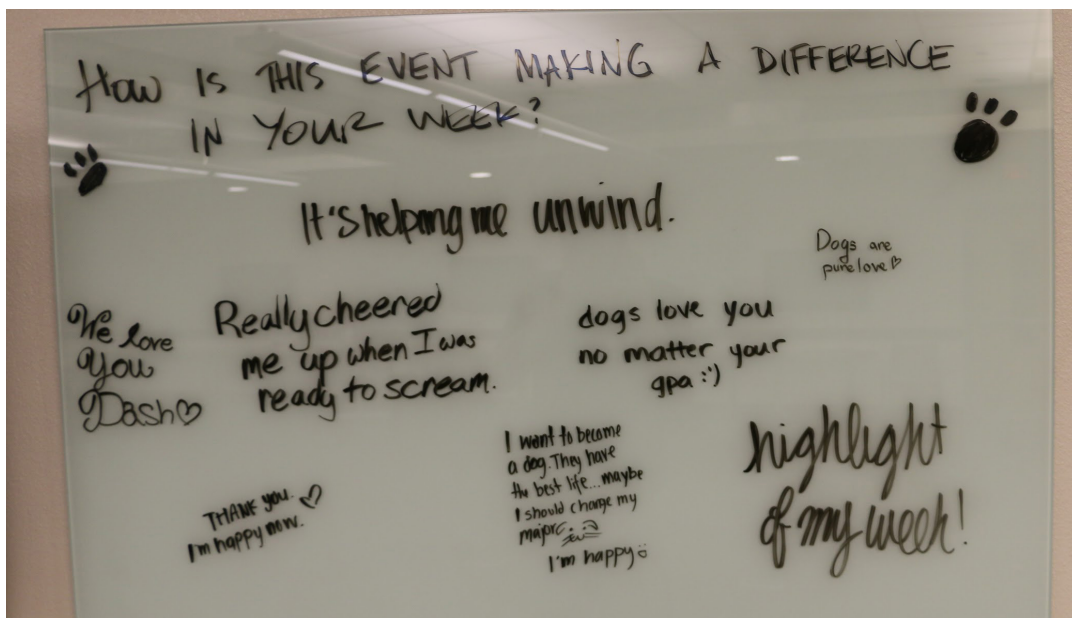 How IS THIS EVENT MAKING A DIFFERENCE
IN YOUR WEEK?
It's helping me unwind.
Dogs are
pure love ♡
We love
You
Dash ♡
Really cheered
me up when I was
ready to scream.
dogs love you
no matter your
gpa :')
I want to become
a dog. They have
the best life... maybe
I should change my
major
I'm happy :)
THANK you. ♡
I'm happy now.
highlight
of my week!